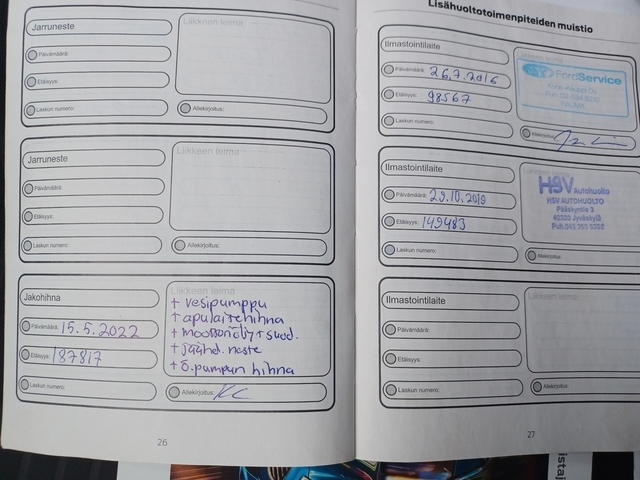 Jarruneste
Liikkeen leima
Päivämäärä:
Etäisyys:
Laskun numero:
Allekirjoitus:
Jarruneste
Liikkeen leima
Päivämäärä:
Etäisyys:
Laskun numero:
Allekirjoitus:
Jakohihna
Liikkeen leima
Päivämäärä: 15.5.2022
Etäisyys: 187817
Laskun numero:
+ vesipumppu
+ apulaitehihna
+ moottoriöljy + suod.
+ jäähd. neste
+ ö.pumpun hihna
Allekirjoitus: KC
26
Lisähuoltotoimenpiteiden muistio
Ilmastointilaite
Päivämäärä: 26.7.2016
Etäisyys: 98567
Laskun numero:
FordService
Allekirjoitus:
Ilmastointilaite
Päivämäärä: 29.10.2019
Etäisyys: 149483
Laskun numero:
HSV Autohuolto
HSV AUTOHUOLTO
Pääskyntie 3
40320 Jyväskylä
Allekirjoitus:
Ilmastointilaite
Liikkeen leima
Päivämäärä:
Etäisyys:
Laskun numero:
Allekirjoitus:
27
istaj